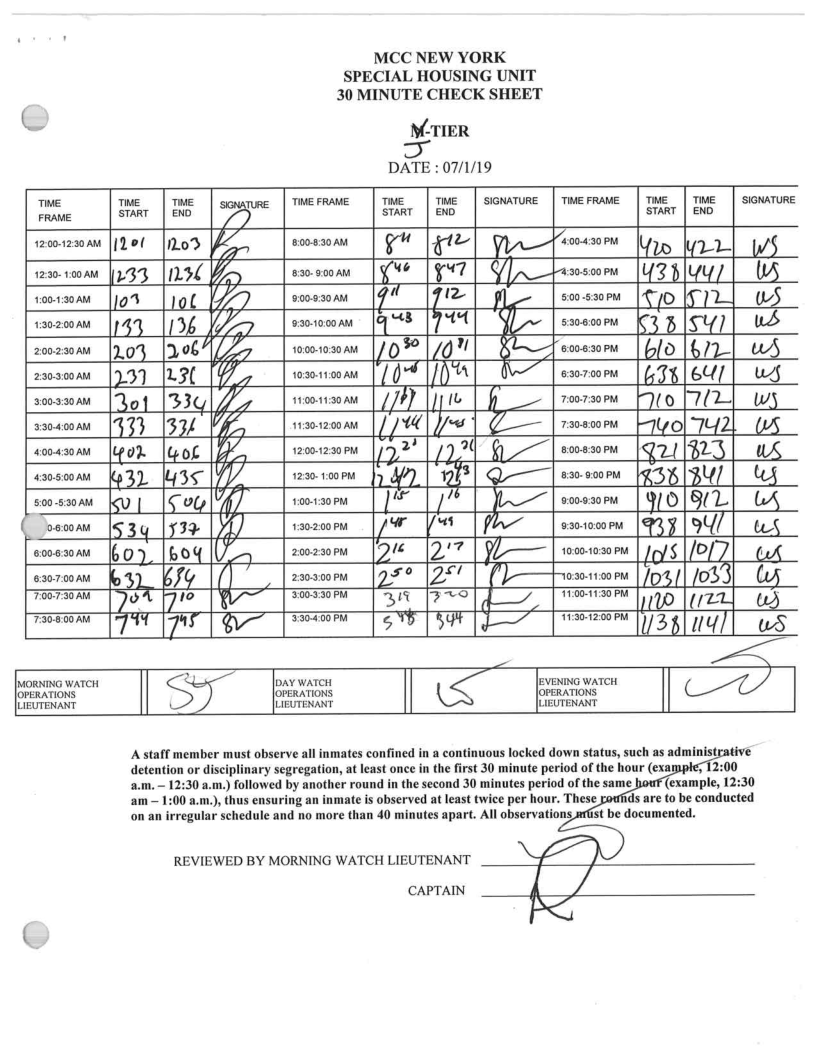 MCC NEW YORK
SPECIAL HOUSING UNIT
30 MINUTE CHECK SHEET
J-TIER
DATE : 07/1/19
TIME FRAME TIME START TIME END SIGNATURE TIME FRAME TIME START TIME END SIGNATURE TIME FRAME TIME START TIME END SIGNATURE
12:00-12:30 AM 1201 1203 8:00-8:30 AM 811 812 4:00-4:30 PM 420 422 WS
12:30- 1:00 AM 1233 1236 8:30- 9:00 AM 846 847 4:30-5:00 PM 438 441 WS
1:00-1:30 AM 103 106 9:00-9:30 AM 911 912 5:00 -5:30 PM 510 512 WS
1:30-2:00 AM 133 136 9:30-10:00 AM 943 944 5:30-6:00 PM 538 541 WS
2:00-2:30 AM 203 206 10:00-10:30 AM 1030 1031 6:00-6:30 PM 610 612 WS
2:30-3:00 AM 233 236 10:30-11:00 AM 1048 1049 6:30-7:00 PM 638 641 WS
3:00-3:30 AM 301 334 11:00-11:30 AM 1116 7:00-7:30 PM 710 712 WS
3:30-4:00 AM 333 336 11:30-12:00 AM 1144 1145 7:30-8:00 PM 740 742 WS
4:00-4:30 AM 402 406 12:00-12:30 PM 12 12 8:00-8:30 PM 821 823 WS
4:30-5:00 AM 432 435 12:30- 1:00 PM 1243 8:30- 9:00 PM 838 841 WS
5:00 -5:30 AM 501 504 1:00-1:30 PM 115 116 9:00-9:30 PM 910 912 WS
0-6:00 AM 534 537 1:30-2:00 PM 148 149 9:30-10:00 PM 938 941 WS
6:00-6:30 AM 602 604 2:00-2:30 PM 216 217 10:00-10:30 PM 1015 1017 WS
6:30-7:00 AM 632 634 2:30-3:00 PM 250 251 10:30-11:00 PM 1031 1033 WS
7:00-7:30 AM 709 710 3:00-3:30 PM 319 320 11:00-11:30 PM 1120 1122 WS
7:30-8:00 AM 744 745 3:30-4:00 PM 344 11:30-12:00 PM 1138 1141 WS
MORNING WATCH OPERATIONS LIEUTENANT DAY WATCH OPERATIONS LIEUTENANT EVENING WATCH OPERATIONS LIEUTENANT
A staff member must observe all inmates confined in a continuous locked down status, such as administrative
detention or disciplinary segregation, at least once in the first 30 minute period of the hour (example, 12:00
a.m. – 12:30 a.m.) followed by another round in the second 30 minutes period of the same hour (example, 12:30
am – 1:00 a.m.), thus ensuring an inmate is observed at least twice per hour. These rounds are to be conducted
on an irregular schedule and no more than 40 minutes apart. All observations must be documented.
REVIEWED BY MORNING WATCH LIEUTENANT
CAPTAIN